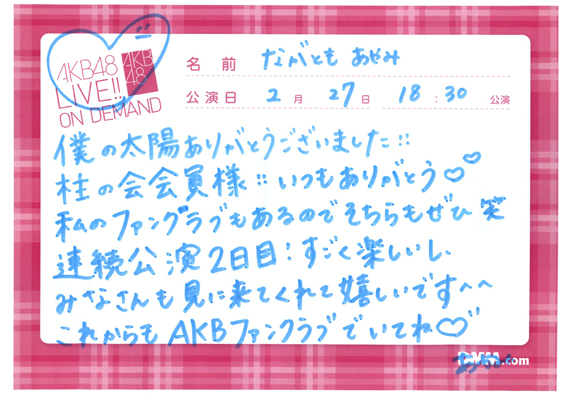 AKB48
LIVE!!
ON DEMAND
AKB
48
名前 ながとも あやみ
公演日 2月 27日 18:30 公演
僕の太陽ありがとうございました!!
柱の会会員様!!いつもありがとう♡♡
私のファンクラブもあるのでそちらもぜひ笑
連続公演2日目!すごく楽しいし、
みなさんも見に来てくれて嬉しいですへへ
これからもAKBファンクラブでいてね♡
DMM.com